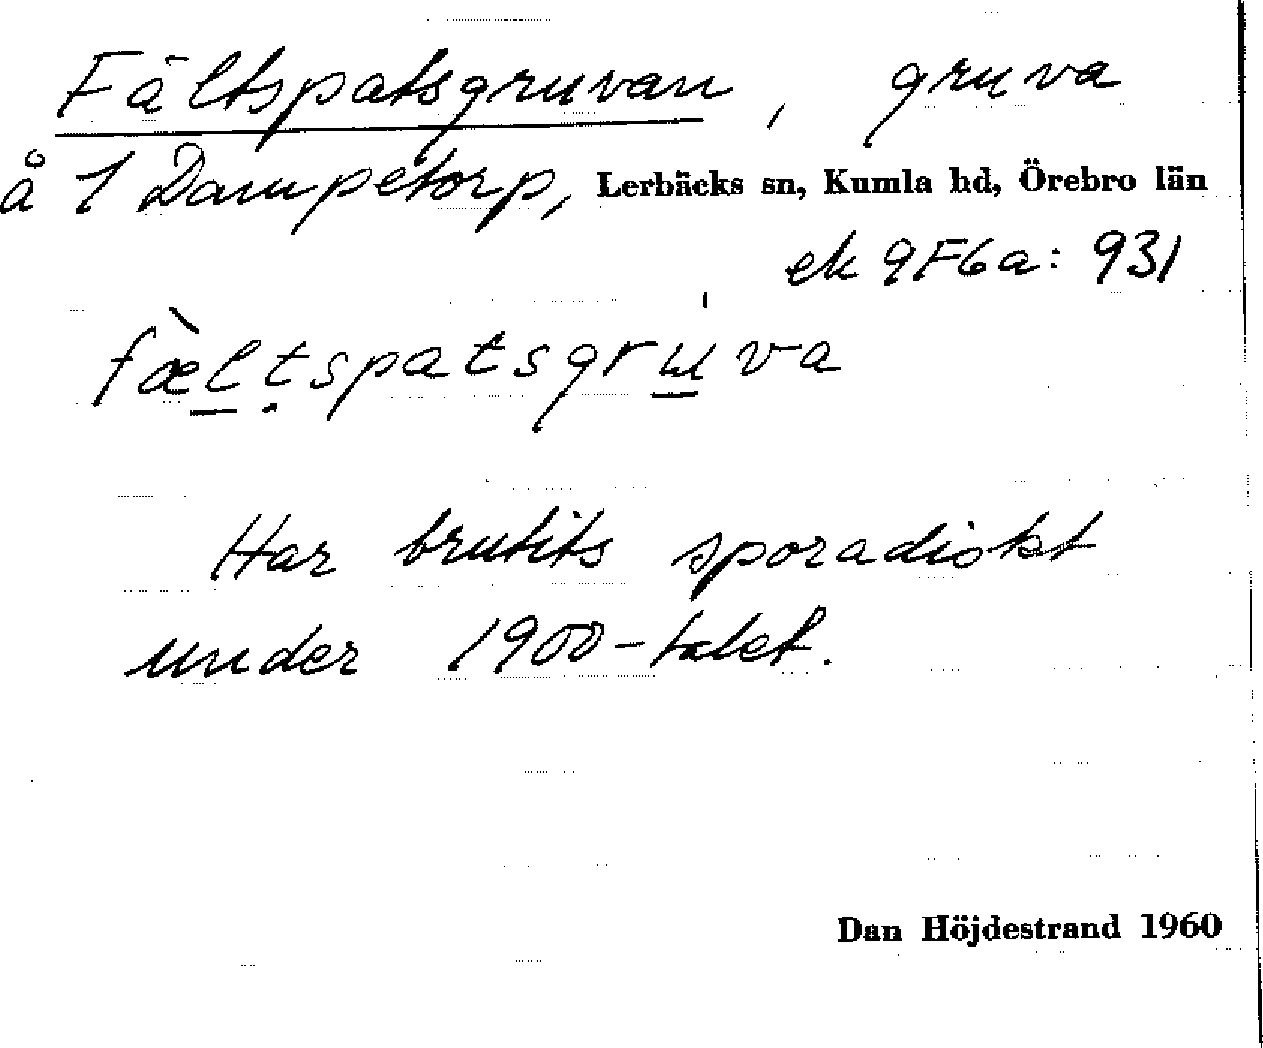 Fältspatsgruvan, gruva
å 1 Dampetorp, Lerbäcks sn, Kumla hd, Örebro län
ek 9F6a: 931
fæ̀ltspatsgruva
Har brutits sporadiskt
under 1900-talet.
Dan Höjdestrand 1960